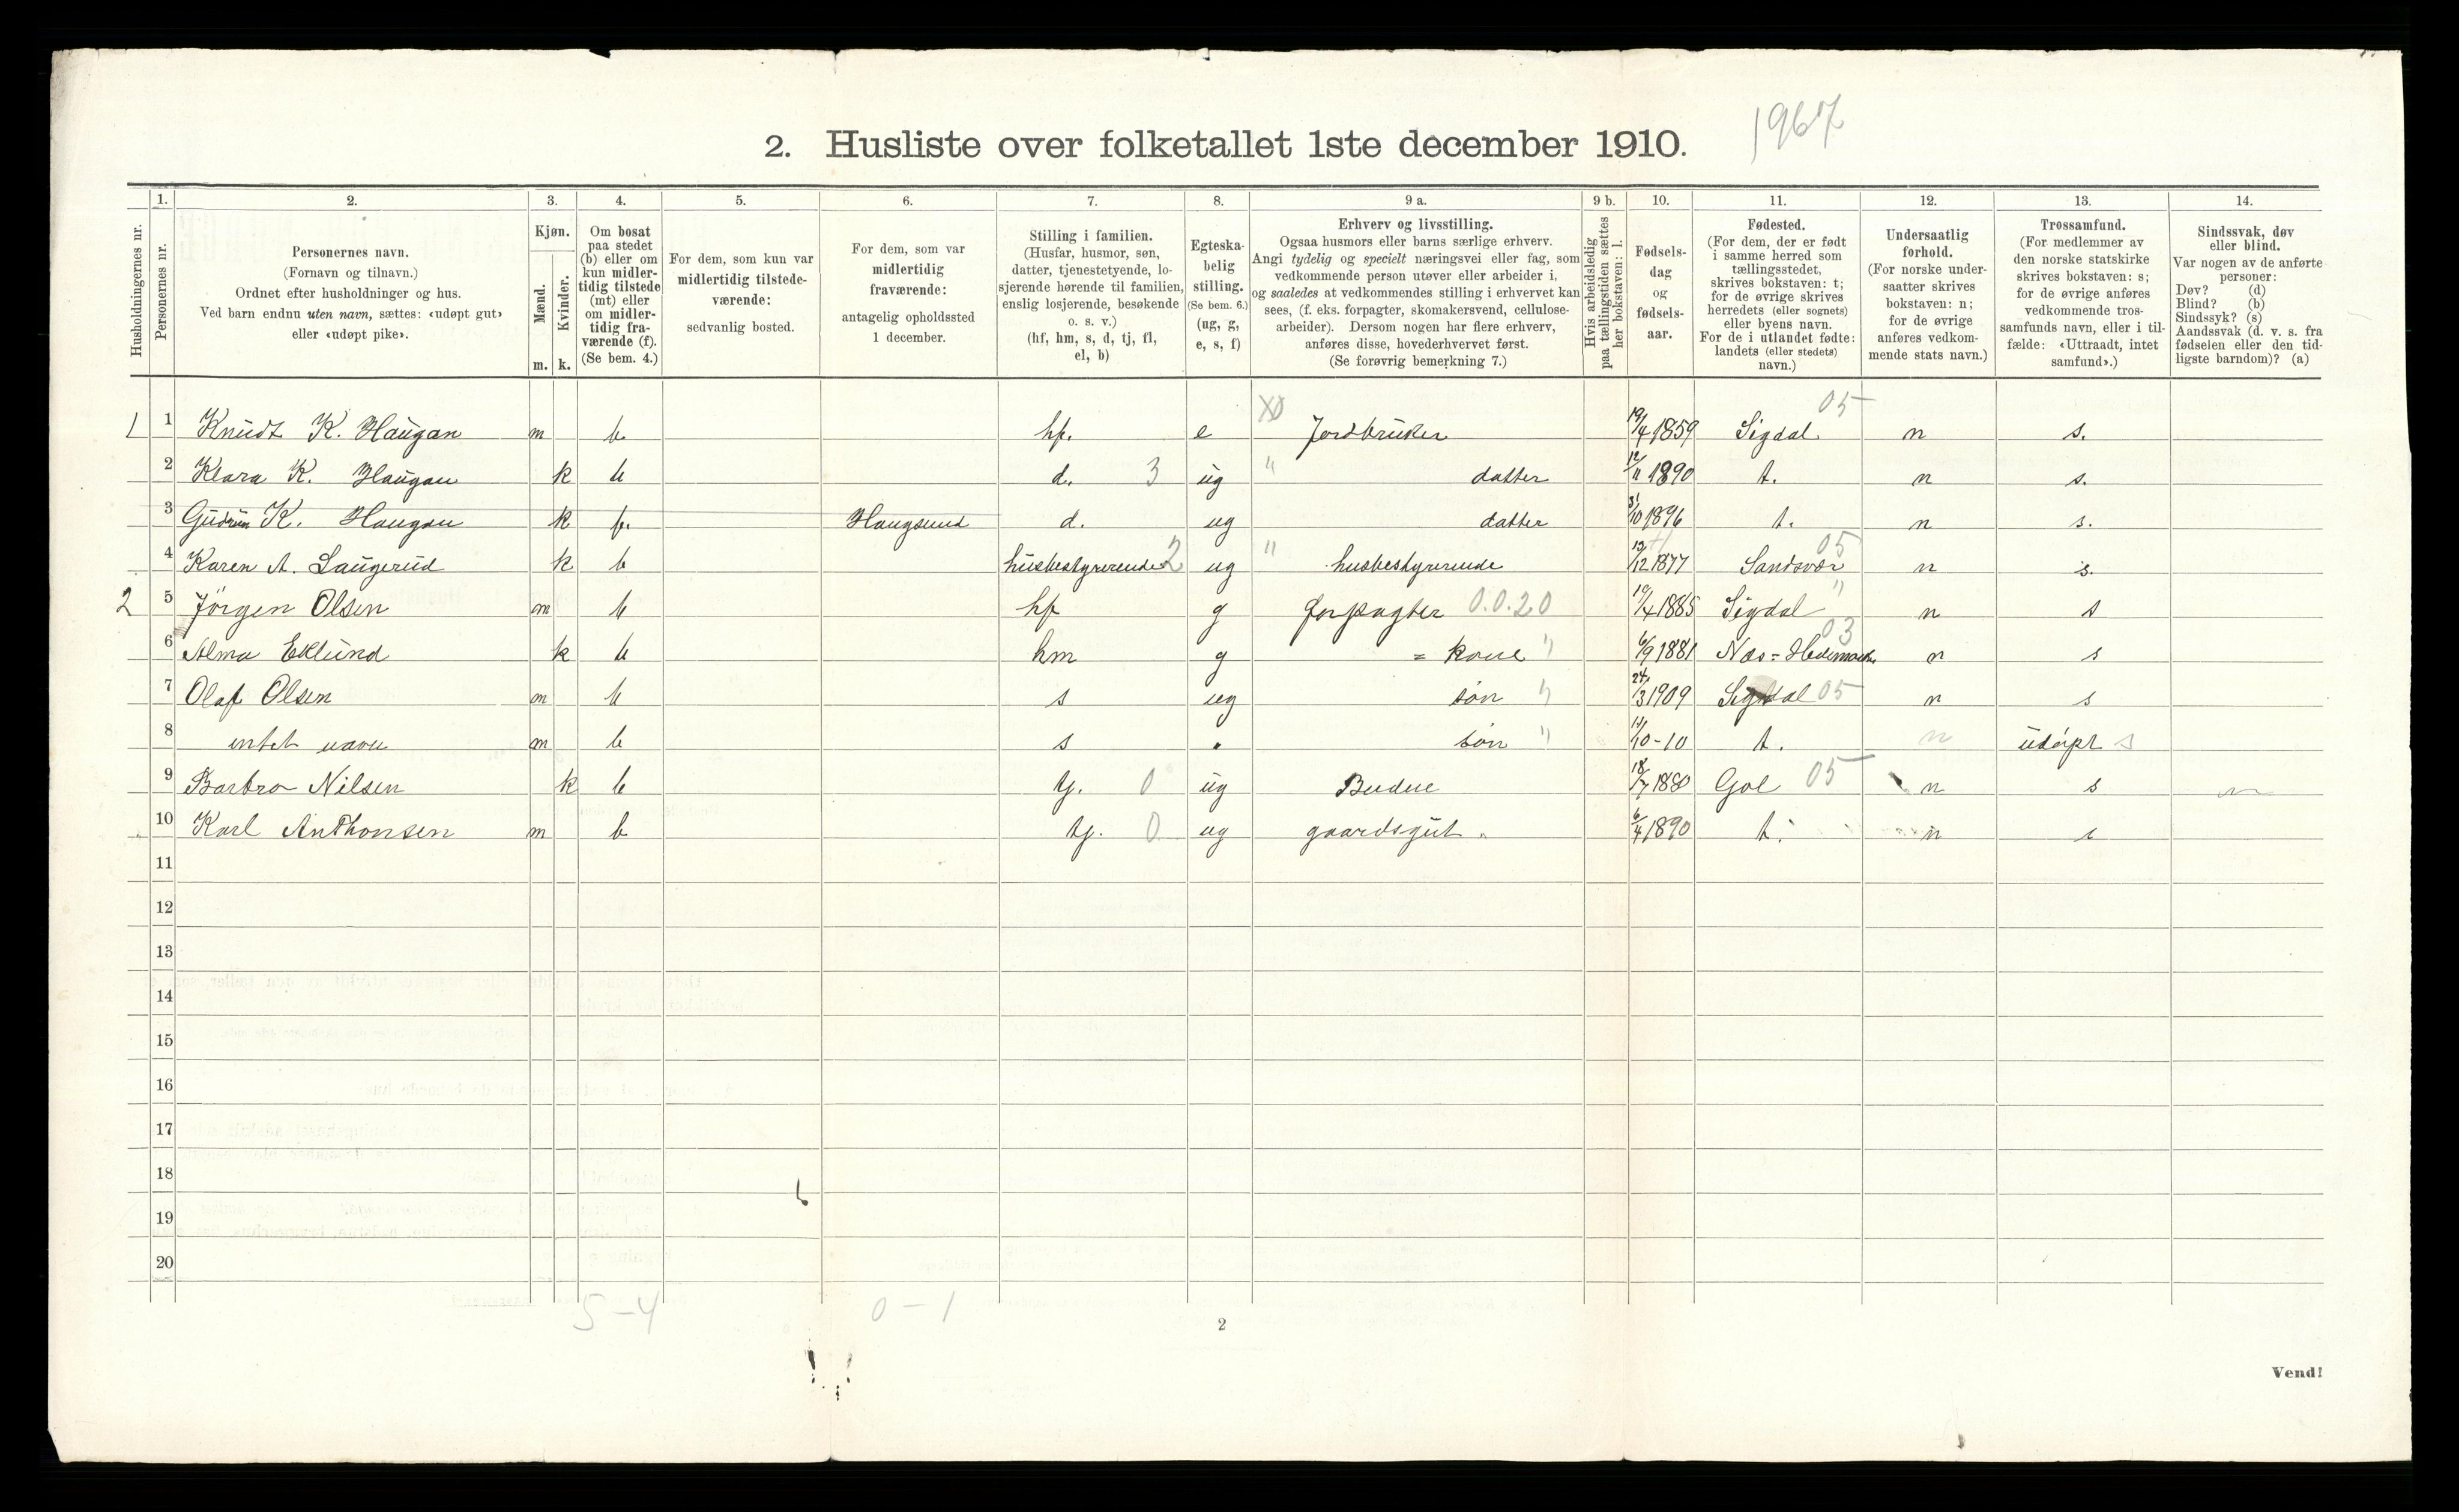 1967
2. Husliste over folketallet 1ste december 1910.
Husholdningernes nr.
1. Personernes nr.
2. Personernes navn.
(Fornavn og tilnavn.)
Ordnet efter husholdninger og hus.
Ved barn endnu uten navn, sættes: «udøpt gut»
eller «udøpt pike».
3. Kjøn.
Mænd. m.
Kvinder. k.
4. Om bosat
paa stedet
(b) eller om
kun midler-
tidig tilstede
(mt) eller
om midler-
tidig fra-
værende (f).
(Se bem. 4.)
5. For dem, som kun var
midlertidig tilstede-
værende:
sedvanlig bosted.
6. For dem, som var
midlertidig
fraværende:
antagelig opholdssted
1 december.
7. Stilling i familien.
(Husfar, husmor, søn,
datter, tjenestetyende, lo-
sjerende hørende til familien,
enslig losjerende, besøkende
o. s. v.)
(hf, hm, s, d, tj, fl,
el, b)
8. Egteska-
belig
stilling.
(Se bem. 6.)
(ug, g,
e, s, f)
9 a. Erhverv og livsstilling.
Ogsaa husmors eller barns særlige erhverv.
Angi tydelig og specielt næringsvei eller fag, som
vedkommende person utøver eller arbeider i,
og saaledes at vedkommendes stilling i erhvervet kan
sees, (f. eks. forpagter, skomakersvend, cellulose-
arbeider). Dersom nogen har flere erhverv,
anføres disse, hovederhvervet først.
(Se forøvrig bemerkning 7.)
9 b. Hvis arbeidsledig
paa tællingstiden sættes
her bokstaven: l.
10. Fødsels-
dag
og
fødsels-
aar.
11. Fødested.
(For dem, der er født
i samme herred som
tællingsstedet,
skrives bokstaven: t;
for de øvrige skrives
herredets (eller sognets)
eller byens navn.
For de i utlandet fødte:
landets (eller stedets)
navn.)
12. Undersaatlig
forhold.
(For norske under-
saatter skrives
bokstaven: n;
for de øvrige
anføres vedkom-
mende stats navn.)
13. Trossamfund.
(For medlemmer av
den norske statskirke
skrives bokstaven: s;
for de øvrige anføres
vedkommende tros-
samfunds navn, eller i til-
fælde: «Uttraadt, intet
samfund».)
14. Sindssvak, døv
eller blind.
Var nogen av de anførte
personer:
Døv? (d)
Blind? (b)
Sindssyk? (s)
Aandssvak (d. v. s. fra
fødselen eller den tid-
ligste barndom)? (a)
1 1 Knudt K. Haugan m b hf. e Jordbruker 19/4 1859 Sigdal 05 n s.
2 Klara K. Haugan k b d. 3 ug " datter 12/11 1890 t. n s.
3 Gudrun K. Haugan k f. Haugsund d. ug datter 31/10 1896 t. n s.
4 Karen A. Laugerud k b husbestyrerende 2 ug " husbestyrerende 12/12 1877 Sandsvær 05 n s.
2 5 Jörgen Olsen m b hf g forpagter 0.0.20 19/4 1885 Sigdal " n s
6 Alma Eklund k b hm g = kone " 6/9 1881 Næs = Hedemarken 03 n s
7 Olaf Olsen m b s ug sön " 24/3 1909 Sigdal 05 n s
8 intet navn m b s sön " 11/10-10 t. n udöpt s
9 Barbro Nilsen k b tj. 0 ug Budeie 18/7 1880 Gol 05 n s
10 Karl Anthonsen m b tj. 0 ug gaardsgut 6/4 1890 t. n s
11
12
13
14
15
16
17
18
19
20
5-4 0-1
2
Vend!